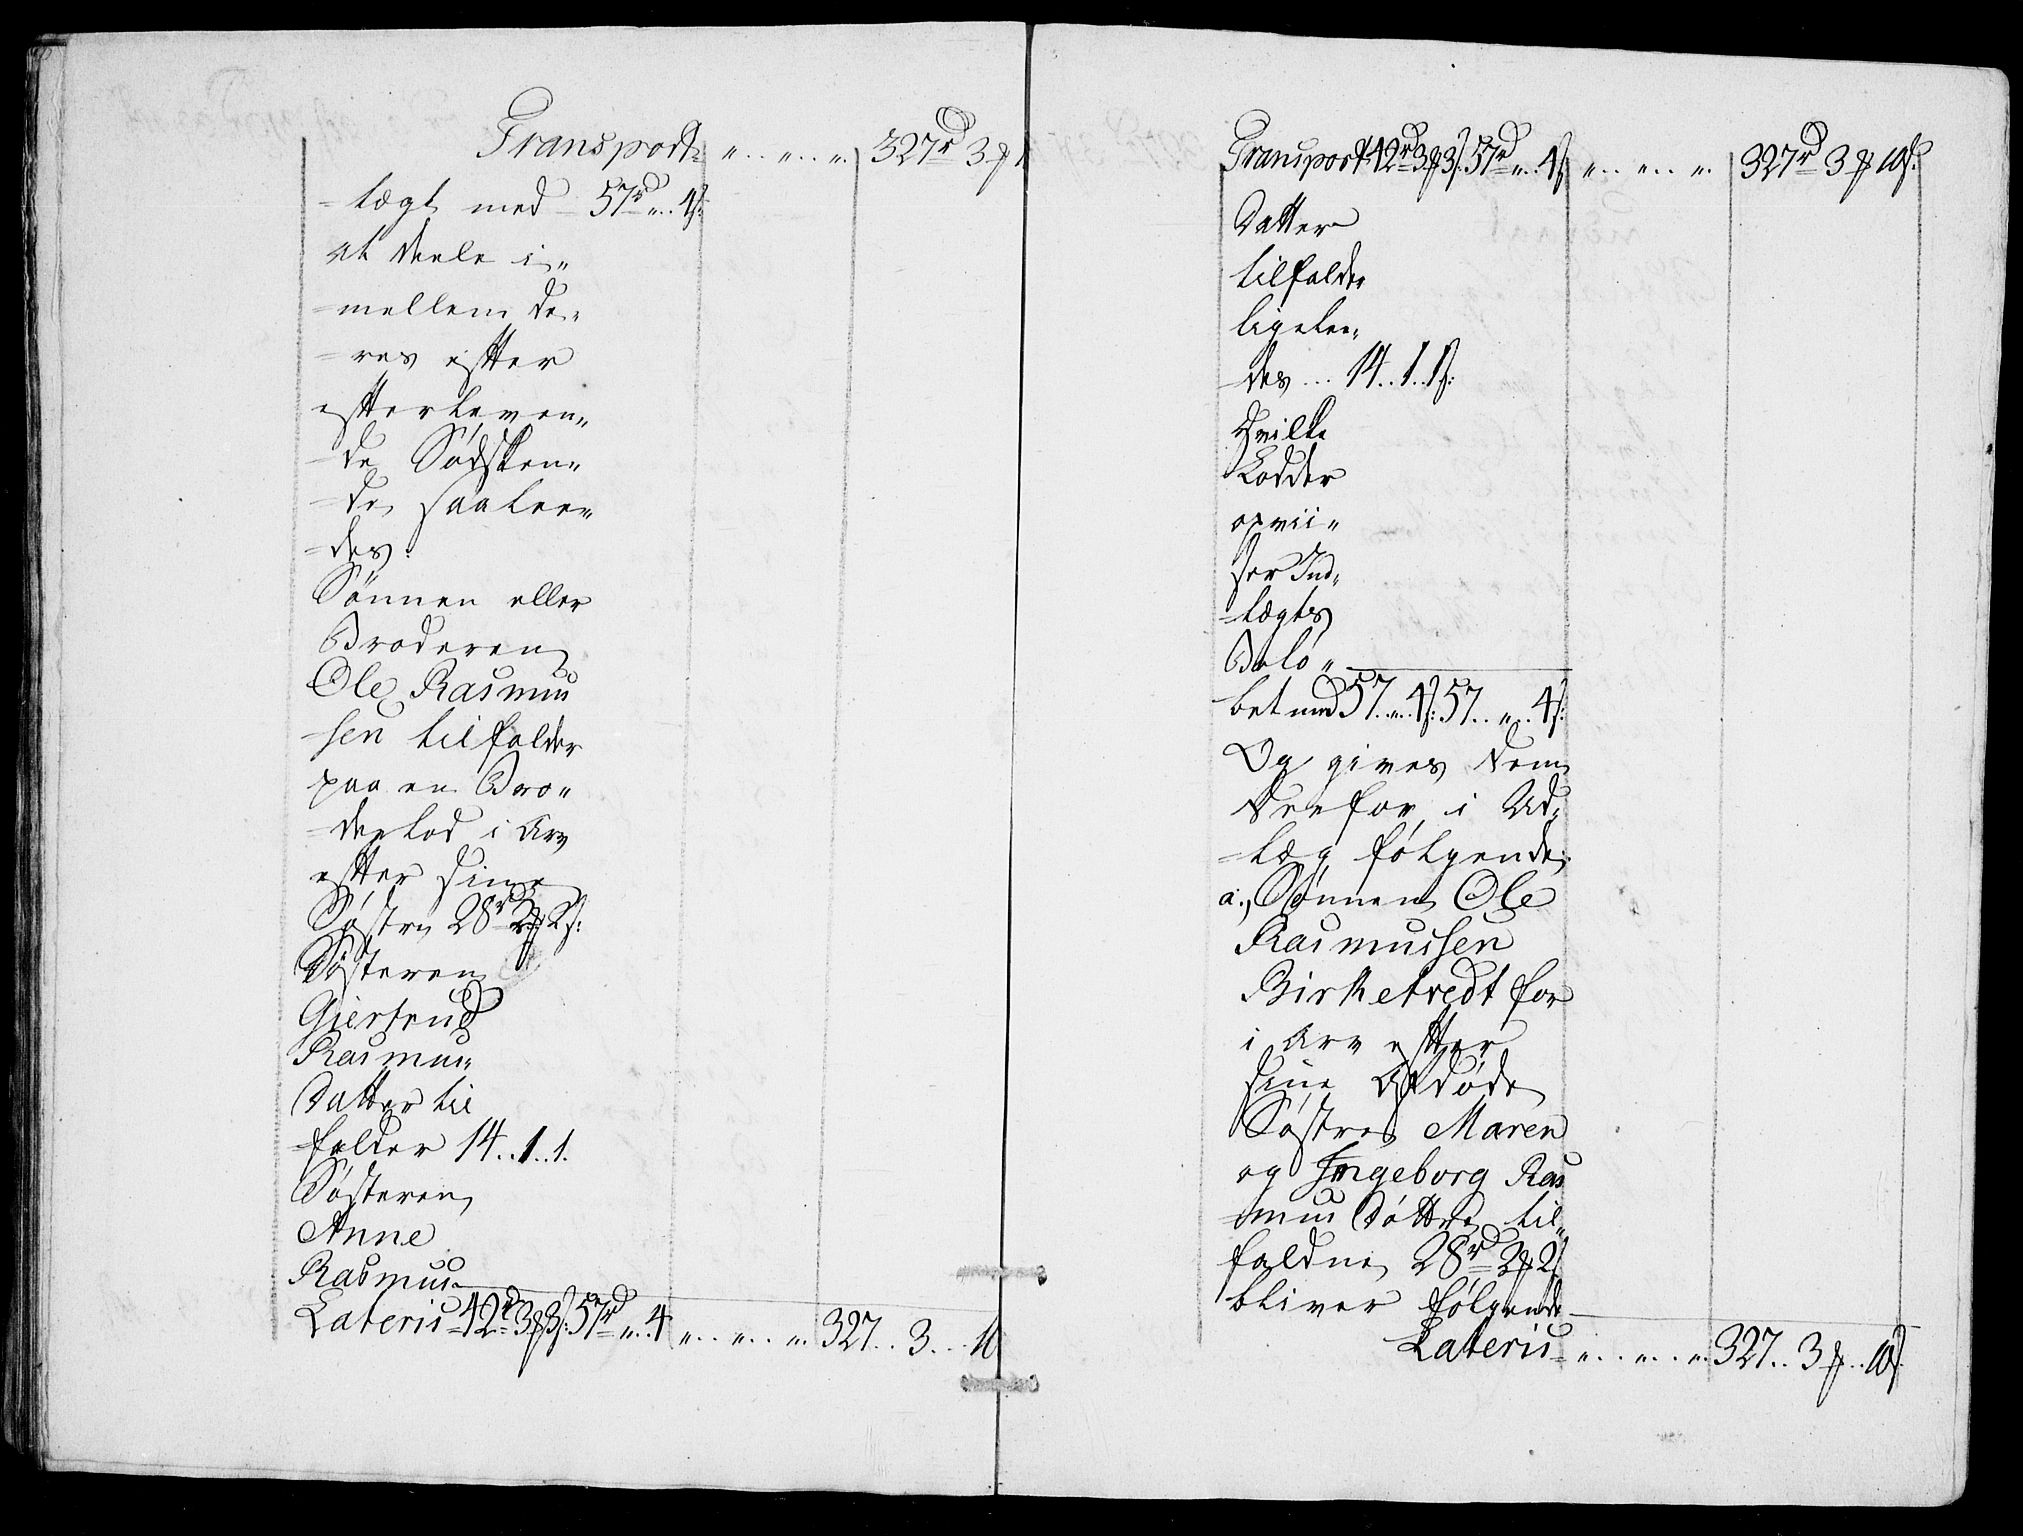 Transport „ .. „ .. „. 327rd 3 ₰ 1
lægt med 57rd „ .. 4s:
at deele i-
mellem de-
res efter
efterleven-
de Sødsken-
de saalee-
des:
Sønnen eller
Broderen
Ole Rasmus
sen tilfalder
paa en Bro-
derlod i Arv
efter sine
Søstre 28rd 2₰ 2s:
Søsteren
Giertrud
Rasmus-
Datter til
falder 14..1..1.
Søsteren
Anne
Rasmus-
Lateris 42rd 3₰ 3s: 57rd „ .. 4 „ .. „ .. „. 327 .. 3 .. 10
Transport 42rd 3₰ 3s. 57rd „ .. 4s „ .. „ .. „. 327rd 3 ₰ 10s.
Datter
tilfalder
ligelee-
des ... 14..1..1s:
Hvilke
Lodder
opvii-
ser Ind-
lægts
Belø-
bet med 57 .. „ .. 4s: 57 .. „ .. 4s:
Og gives dem
derfor i Ud-
læg følgende:
a., Sønnen Ole
Rasmussen
Birketvedt for
i Arv efter
sine Afdøde
Søstre Maren
og Ingeborg Ras
mus Døttre til-
faldne 28rd 2₰ 2s
bliver følgende
Lateris „ .. „ .. „. 327 .. 3 ₰ .. 10s.